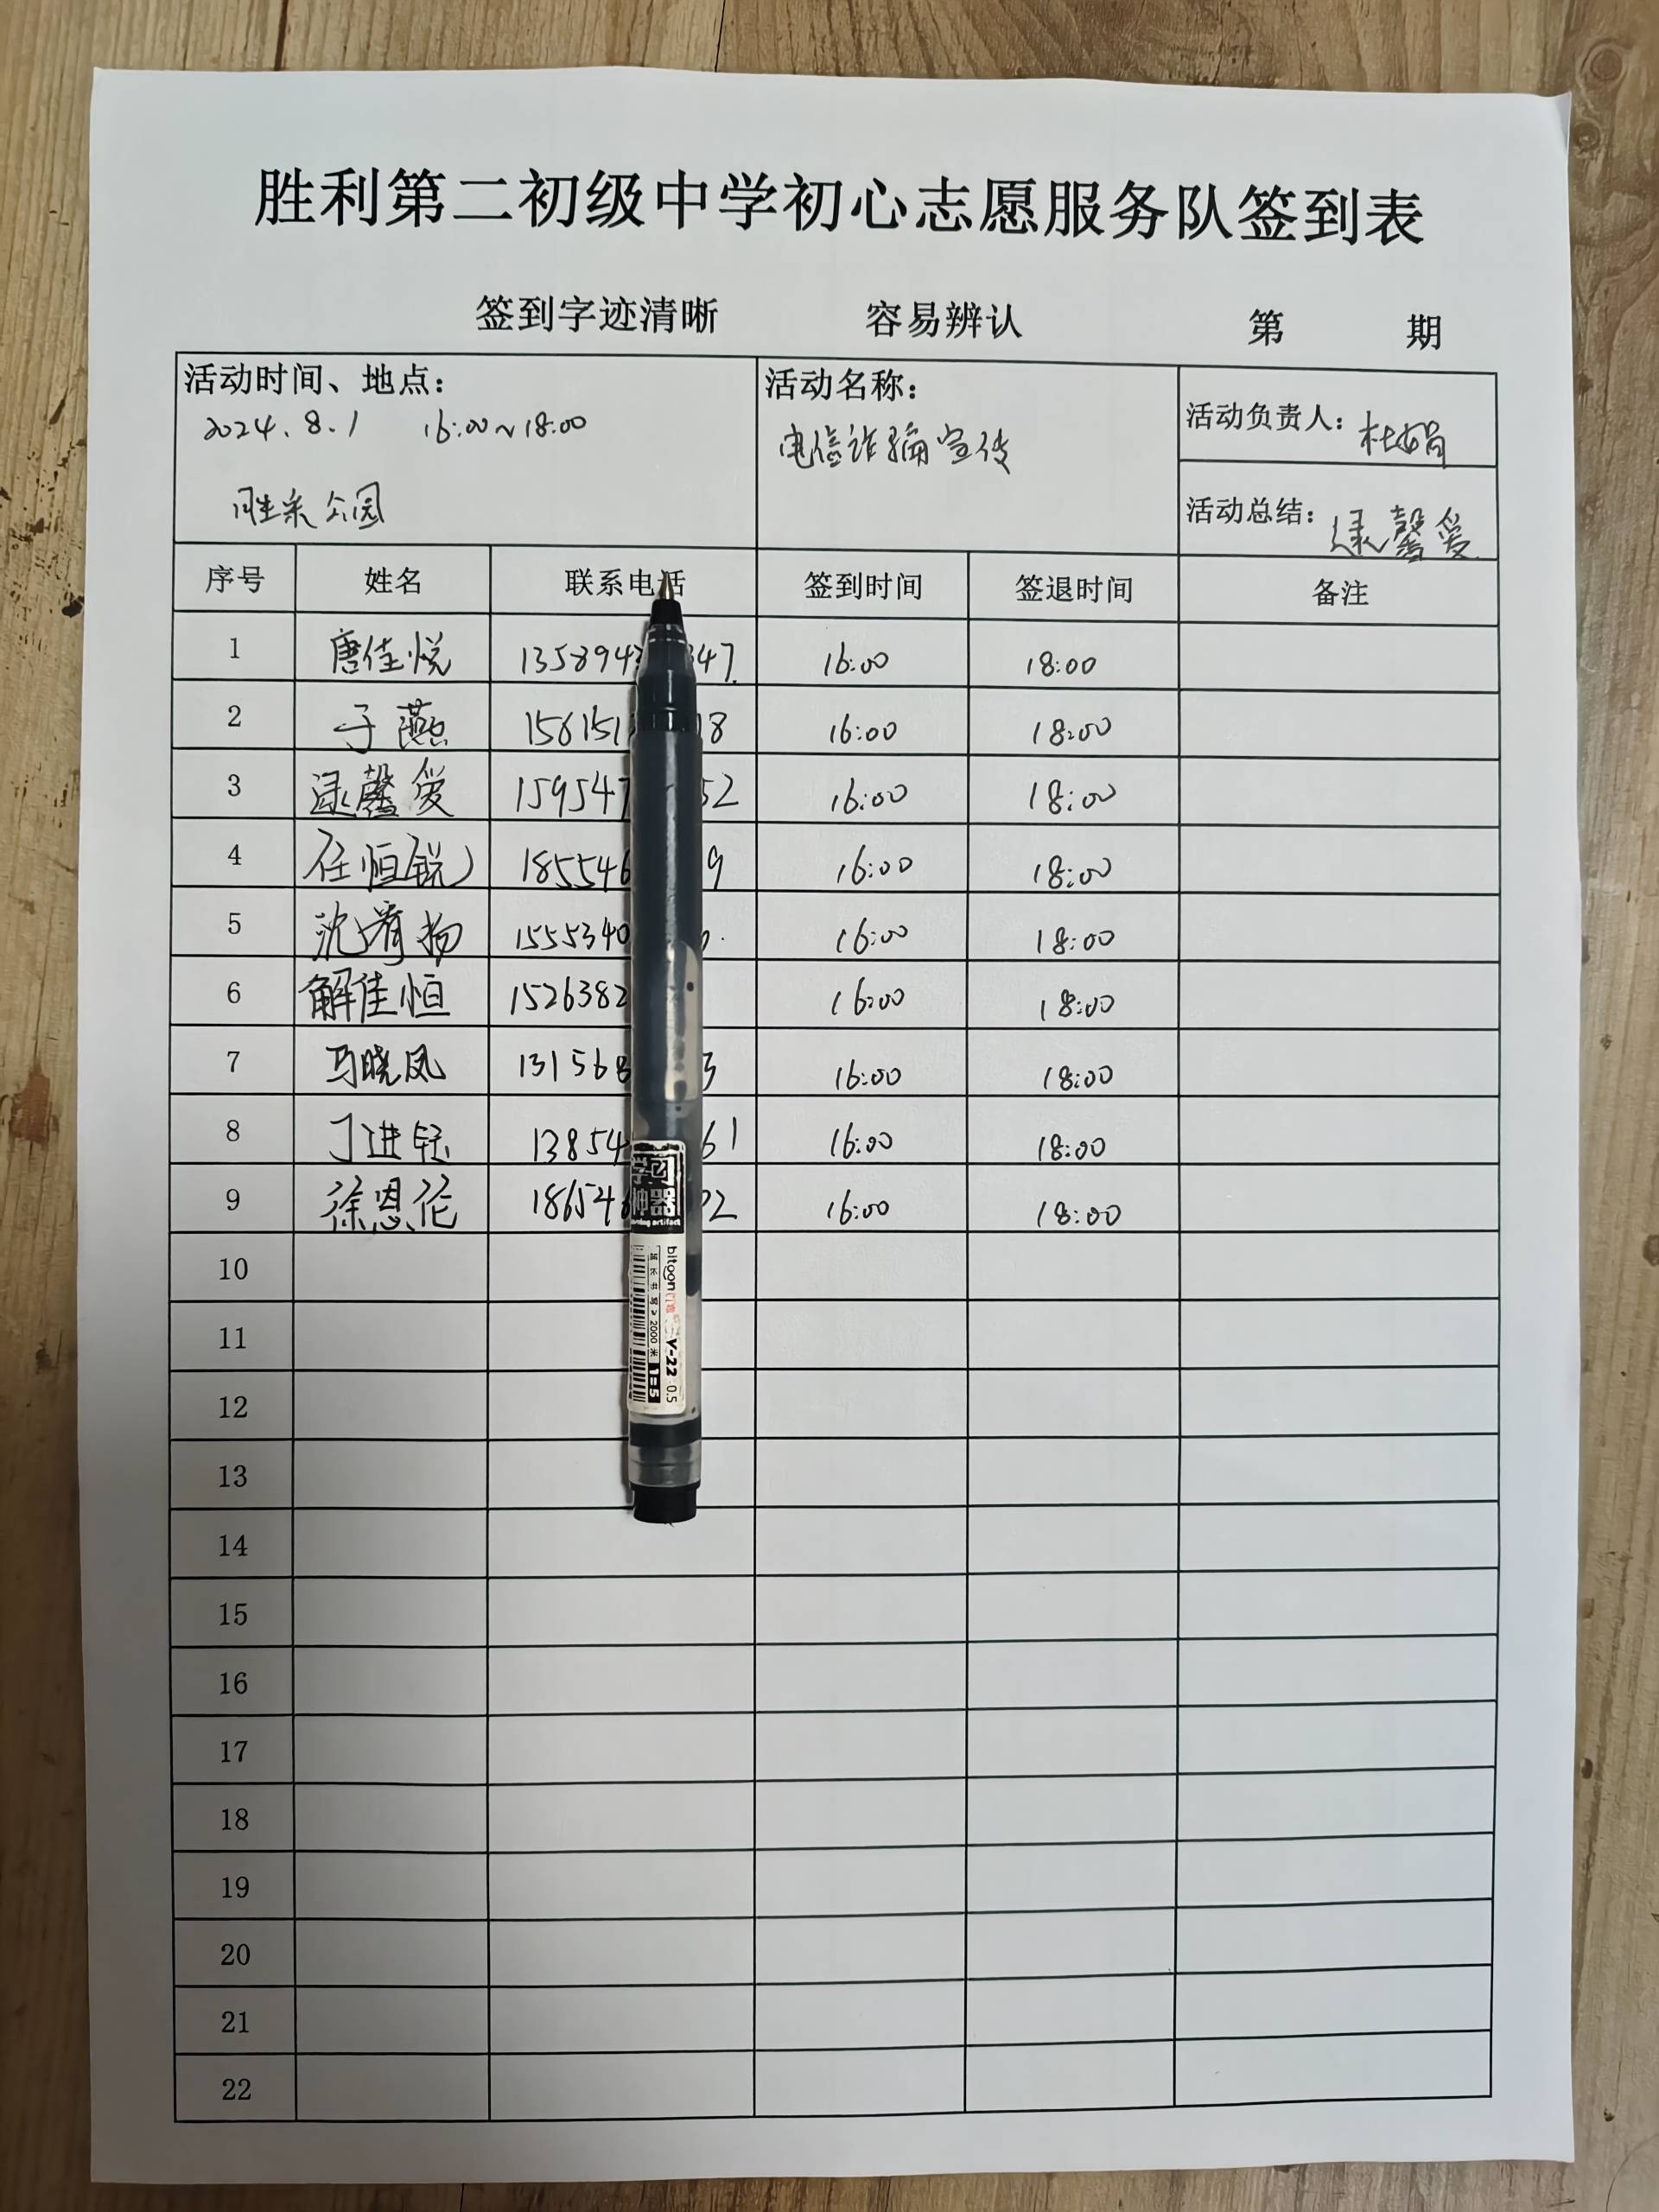 胜利第二初级中学初心志愿服务队签到表
签到字迹清晰 容易辨认 第 期
活动时间、地点：
2024.8.1 16:00~18:00
胜采公园
活动名称：
电信诈骗宣传
活动负责人：杜娟
活动总结：逯馨爱
序号 姓名 联系电话 签到时间 签退时间 备注
1 唐佳悦 1358942 347 16:00 18:00
2 于燕 156151 18 16:00 18:00
3 逯馨爱 159547 52 16:00 18:00
4 任恒锐 185546 9 16:00 18:00
5 沈 扬 1555340 16:00 18:00
6 解佳恒 1526382 16:00 18:00
7 马晓凤 131568 3 16:00 18:00
8 丁进钰 13854 61 16:00 18:00
9 徐恩伦 186546 02 16:00 18:00
10
11
12
13
14
15
16
17
18
19
20
21
22
学习
神器
bitoon V-22 0.5
延长书写>2000米 1=5